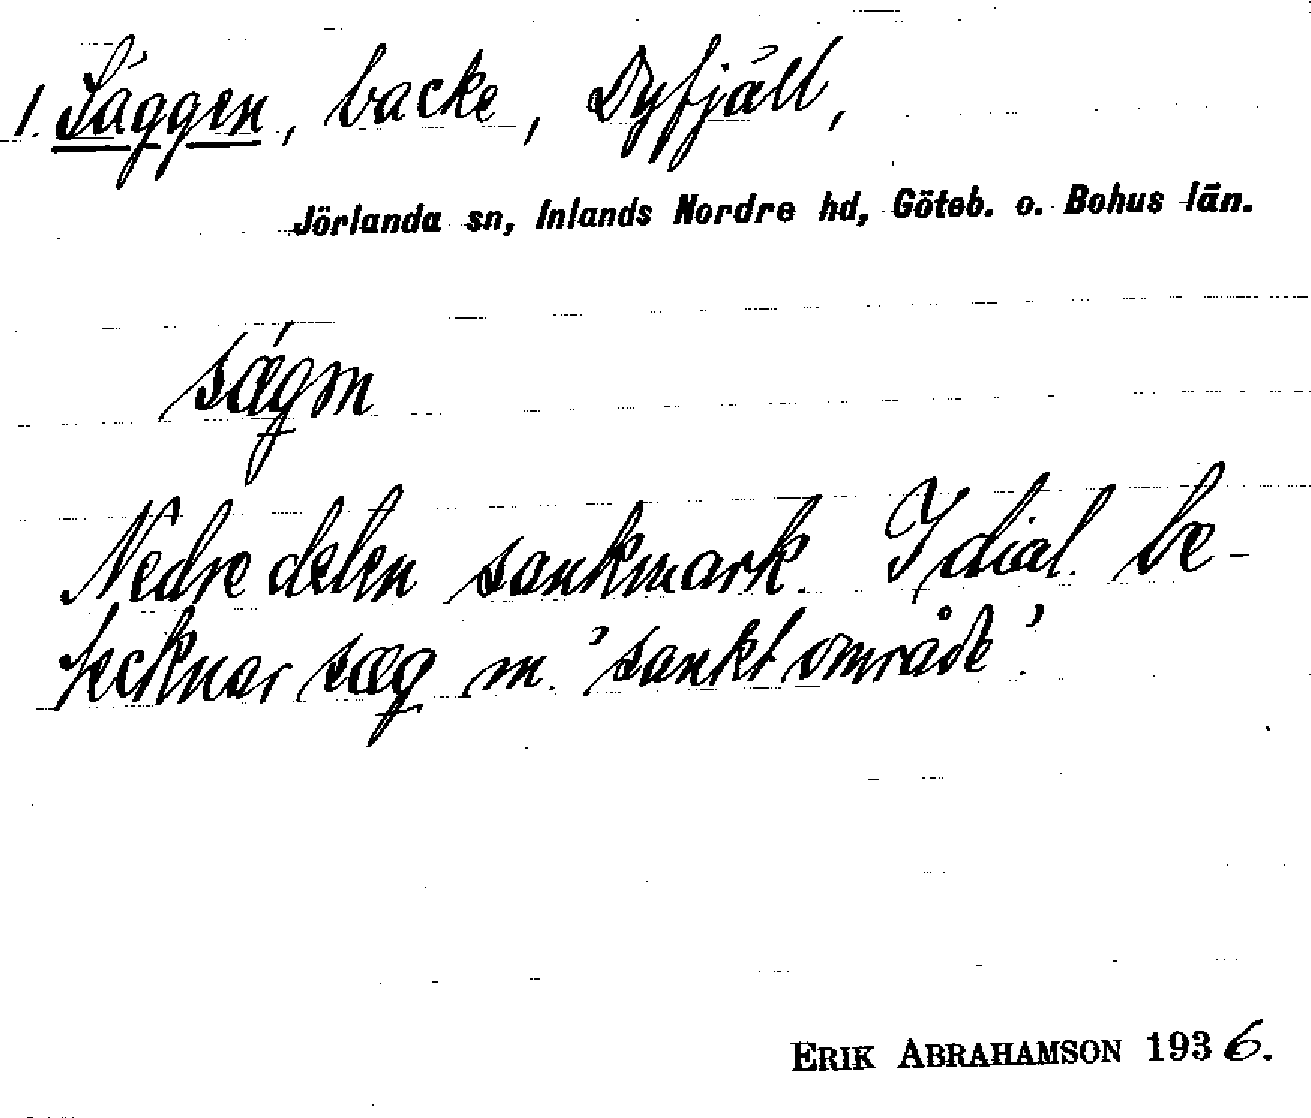 1. Säggen, backe, Dyfjäll,
Jörlanda sn, Inlands Nordre hd, Göteb. o. Bohus län.
sǽgm
Nedre delen sankmark. I dial. be-
tecknar sæg m. 'sankt område'.
ERIK ABRAHAMSON 1936.